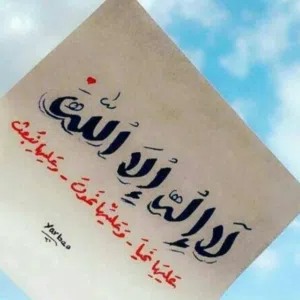 لا إله إلا الله
عليها نحيا - وعليها نموت - وعليها نبعث
yarbaa